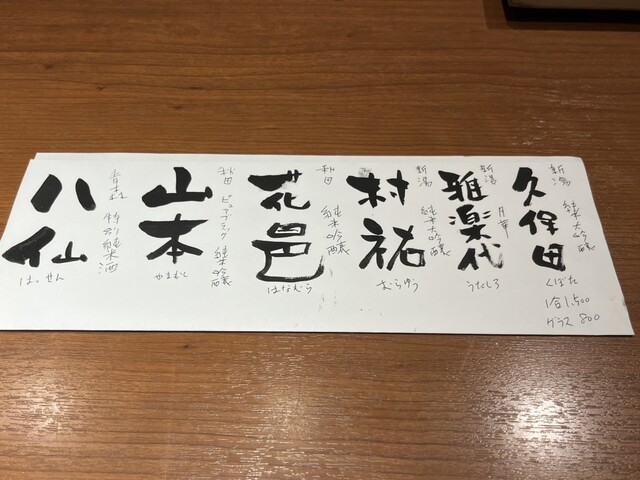 新潟 純米大吟醸
久保田
くぼた
1合1,500
グラス 800
新潟 月華
雅楽代
うたしろ
新潟 純米大吟醸
村祐
むらゆう
秋田 純米吟醸
花邑
はなむら
秋田 ピュアブラック 純米吟醸
山本
やまもと
青森 特別純米酒
八仙
はっせん